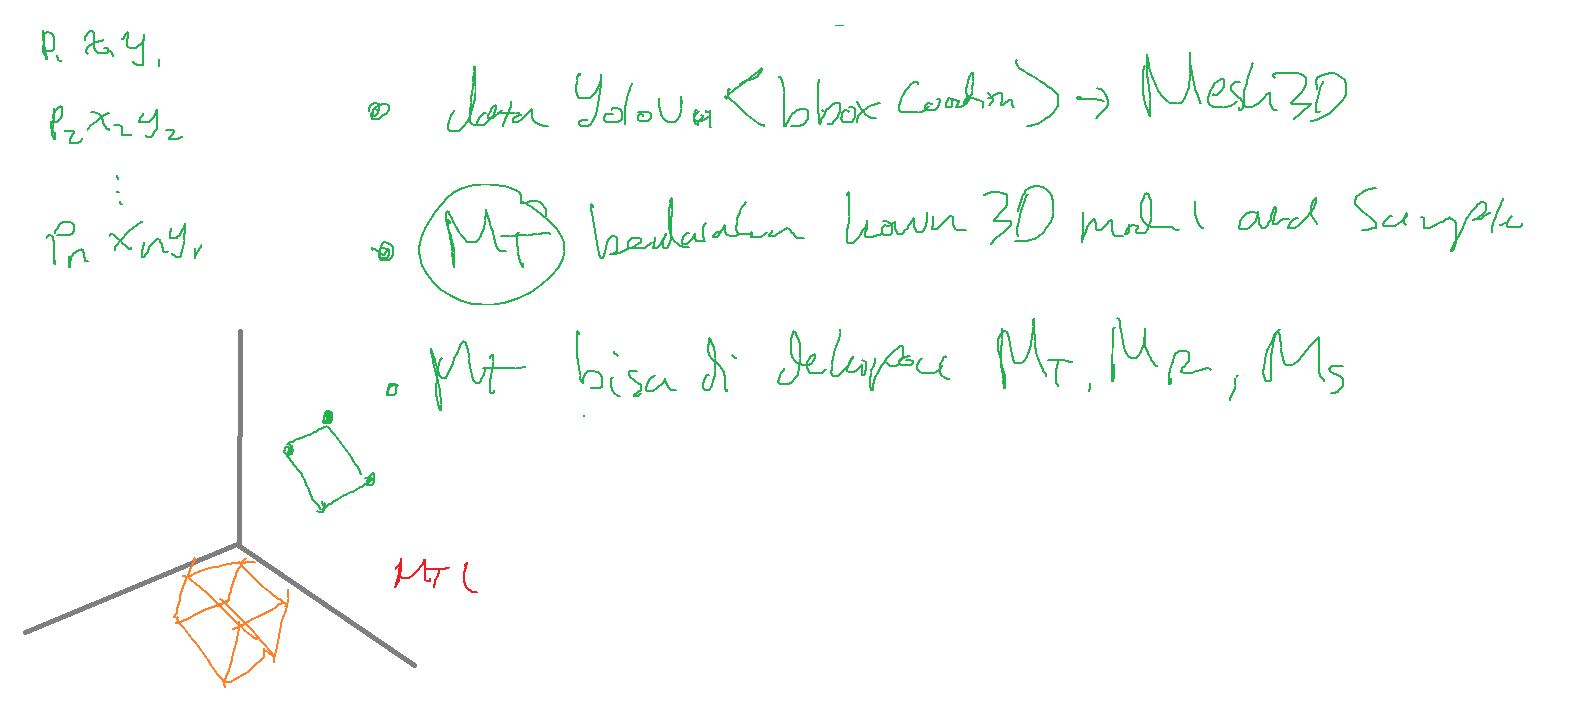 P1 x1 y1
P2 x2 y2
⋮
Pn xn yn
• data Yolov <bbox Coordin> → Mesh3D
• MT berdasarkan known 3D model and Sample
• MT bisa di MT, MR, MS
MT